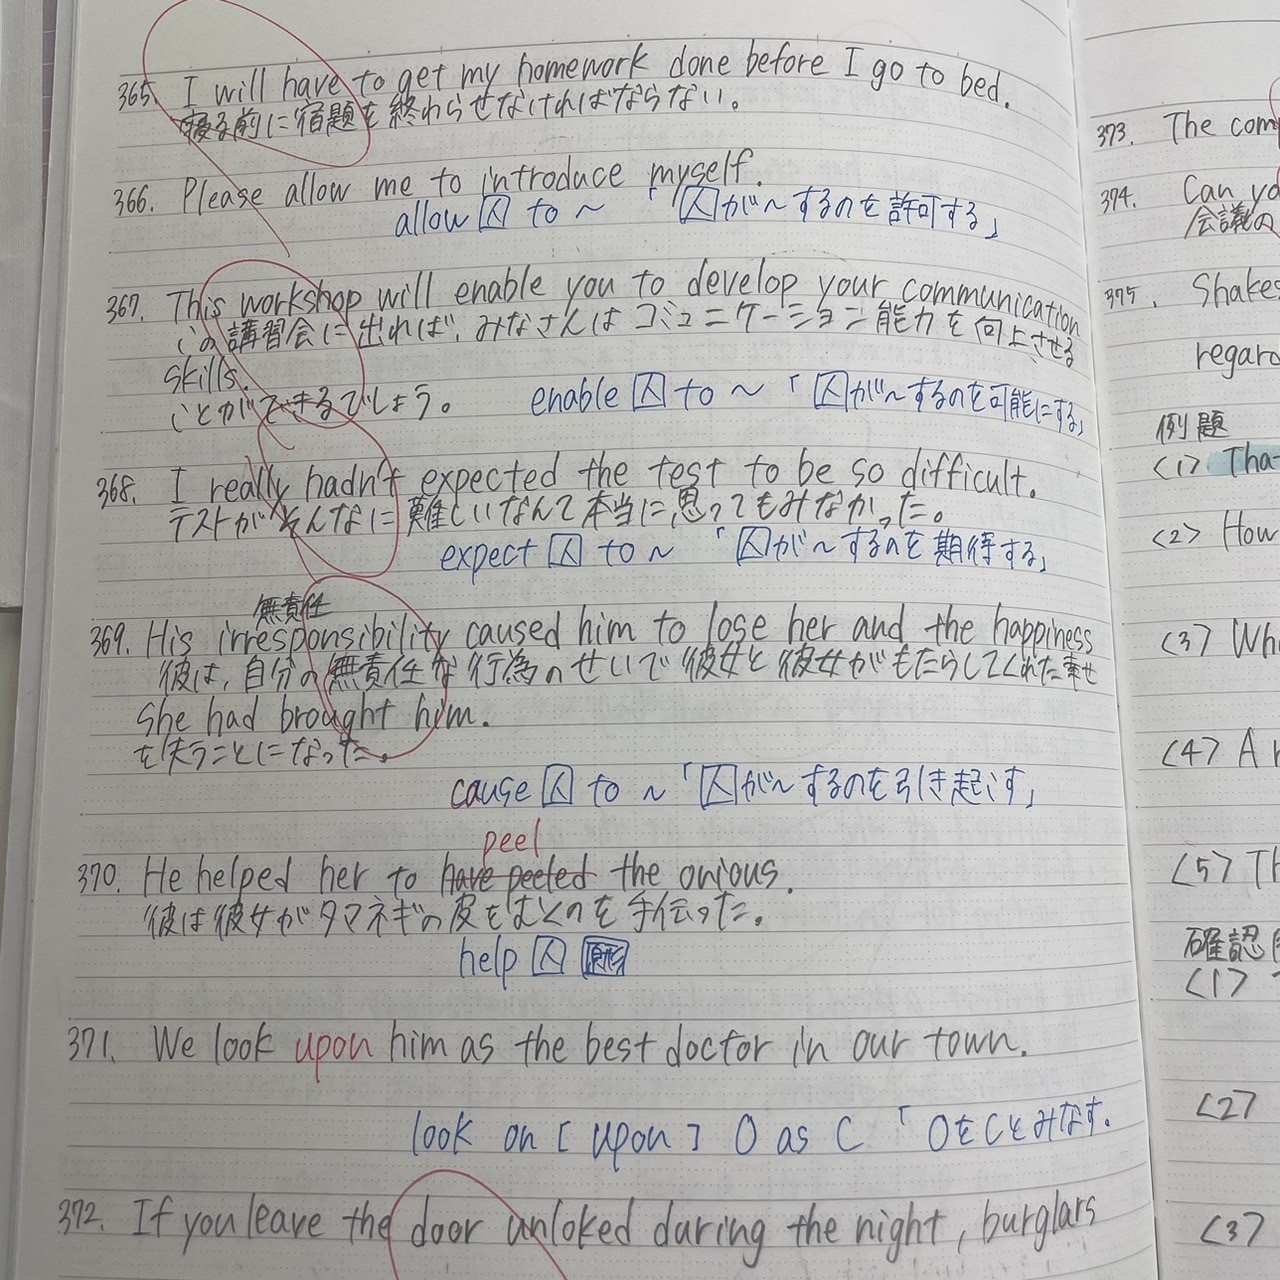 365. I will have to get my homework done before I go to bed.
寝る前に宿題を終わらせなければならない。
366. Please allow me to introduce myself.
allow 囚 to ~ 「囚が~するのを許可する」
367. This workshop will enable you to develop your communication
この講習会に出れば、みなさんはコミュニケーション能力を向上させる
skills.
ことができるでしょう。 enable 囚 to ~ 「囚が~するのを可能にする」
368. I really hadn't expected the test to be so difficult.
テストがそんなに難しいなんて本当に思ってもみなかった。
expect 囚 to ~ 「囚が~するのを期待する」
無責任
369. His irresponsibility caused him to lose her and the happiness
彼は、自分の無責任な行為のせいで彼女と彼女がもたらしてくれた幸せ
she had brought him.
を失うことになった。
cause 囚 to ~ 「囚が~するのを引き起こす」
peel
370. He helped her to have peeled the onious.
彼は彼女がタマネギの皮をむくのを手伝った。
help 囚 原形
371. We look upon him as the best doctor in our town.
look on [upon] O as C 「OをCとみなす。
372. If you leave the door unloked during the night, burglars
373. The com
374. Can yo
会議の
375. Shakes
regard
例題
<1> Tha
<2> How
<3> Wh
<4> A
<5> Th
確認
<1>
<2>
<3>